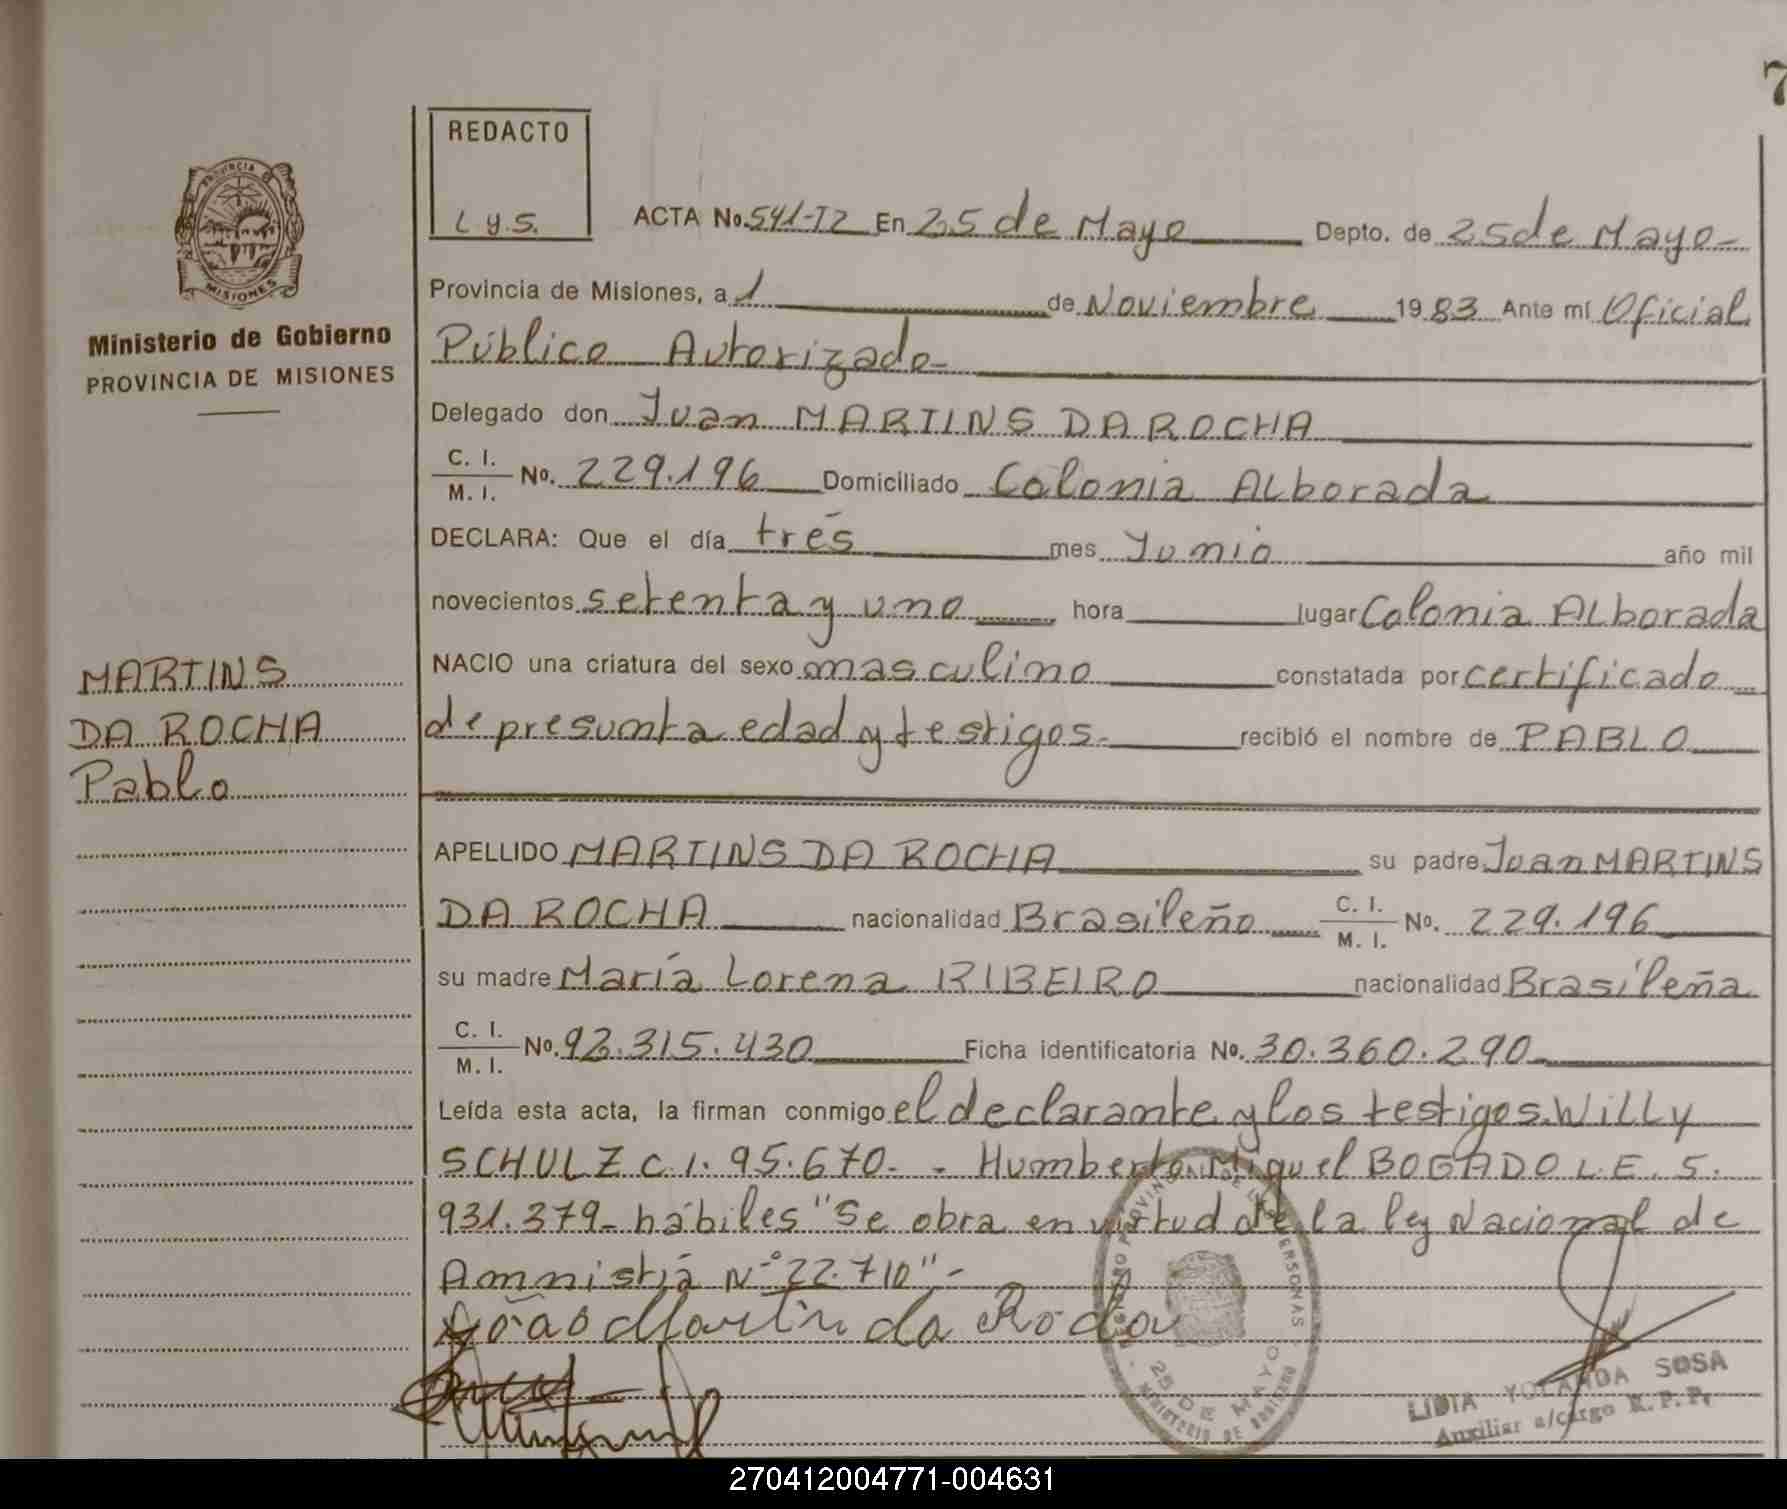 7
REDACTO
L y.S.
ACTA No. 541-T2 En 25 de Mayo Depto. de 25 de Mayo-
Provincia de Misiones, a 1 de Noviembre 1983 Ante mí Oficial
Público Autorizado-
PROVINCIA
MISIONES
Ministerio de Gobierno
PROVINCIA DE MISIONES
Delegado don Juan MARTINS DA ROCHA
C. I.
M. I. No. 229.196 Domiciliado Colonia Alborada
DECLARA: Que el día trés mes Junio año mil
novecientos setenta y uno hora lugar Colonia Alborada
NACIO una criatura del sexo masculino constatada por certificado
de presunta edad y testigos.- recibió el nombre de PABLO
MARTINS
DA ROCHA
Pablo
APELLIDO MARTINS DA ROCHA su padre Juan MARTINS
DA ROCHA nacionalidad Brasileño C. I.
M. I. No. 229.196
su madre María Lorena RIBEIRO nacionalidad Brasileña
C. I.
M. I. No. 92.315.430 Ficha identificatoria No. 30.360.290
Leída esta acta, la firman conmigo el declarante y los testigos. Willy
SCHULZ C.I. 95.670.- - Humberto Miguel BOGADO L.E. 5.
931.379- hábiles "Se obra en virtud de la ley Nacional de
Amnistía N° 22.710"-
João Martin da Rocha
25 DE MAYO
MINISTERIO DE GOBIERNO
LIDIA YOLANDA SOSA
Auxiliar a/cargo R. P. P.
270412004771-004631